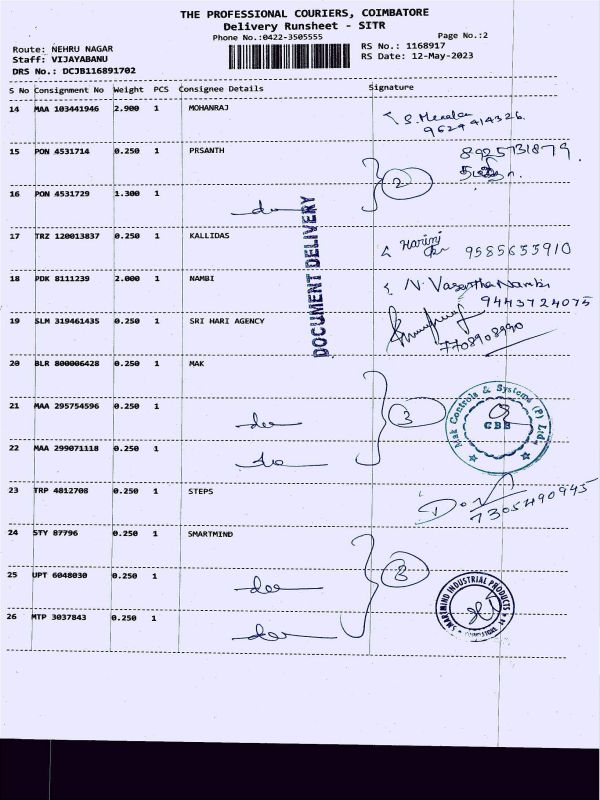 THE PROFESSIONAL COURIERS, COIMBATORE
Delivery Runsheet - SITR
Phone No.:0422-3505555 Page No.:2
Route: NEHRU NAGAR RS No.: 1168917
Staff: VIJAYABANU RS Date: 12-May-2023
DRS No.: DCJB116891702
S No Consignment No Weight PCS Consignee Details Signature
14 MAA 103441946 2.900 1 MOHANRAJ
9629414326
15 PON 4531714 0.250 1 PRSANTH 8925731879
16 PON 4531729 1.300 1 2
DOCUMENT DELIVERY
17 TRZ 120013837 0.250 1 KALLIDAS Harini 9585653910
18 PDK 8111239 2.000 1 NAMBI N. Vasantha Nambi
9443724075
19 SLM 319461435 0.250 1 SRI HARI AGENCY
7708908990
20 BLR 800006428 0.250 1 MAK
21 MAA 295754596 0.250 1 3 Mak Controls & Systems (P) Ltd CBE
22 MAA 299071118 0.250 1
23 TRP 4812708 0.250 1 STEPS
7305490945
24 STY 87796 0.250 1 SMARTMIND
25 UPT 6048030 0.250 1 3 SMARTMIND INDUSTRIAL PRODUCTS
26 MTP 3037843 0.250 1